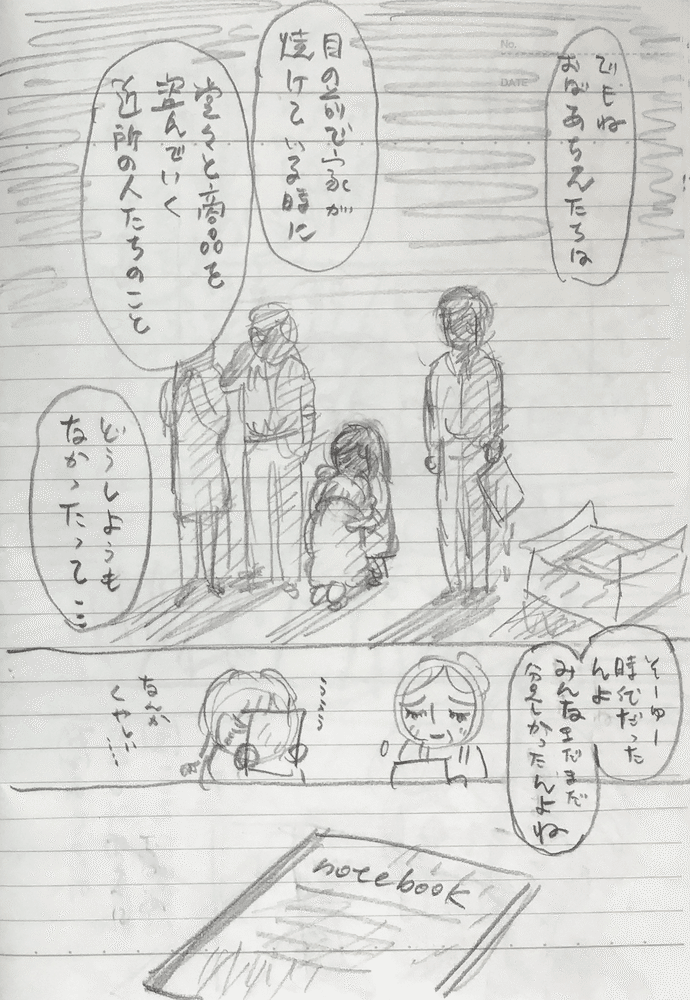 No.
DATE
でもね
おばあちゃんたちは
目の前で家が
焼けている時に
堂々と商品を
盗んでいく
近所の人たちのこと
どうしようも
なかったって…
そーゆー
時代だった
んよ
みんなまだまだ
貧しかったんよね
なんか
くやしい…
notebook